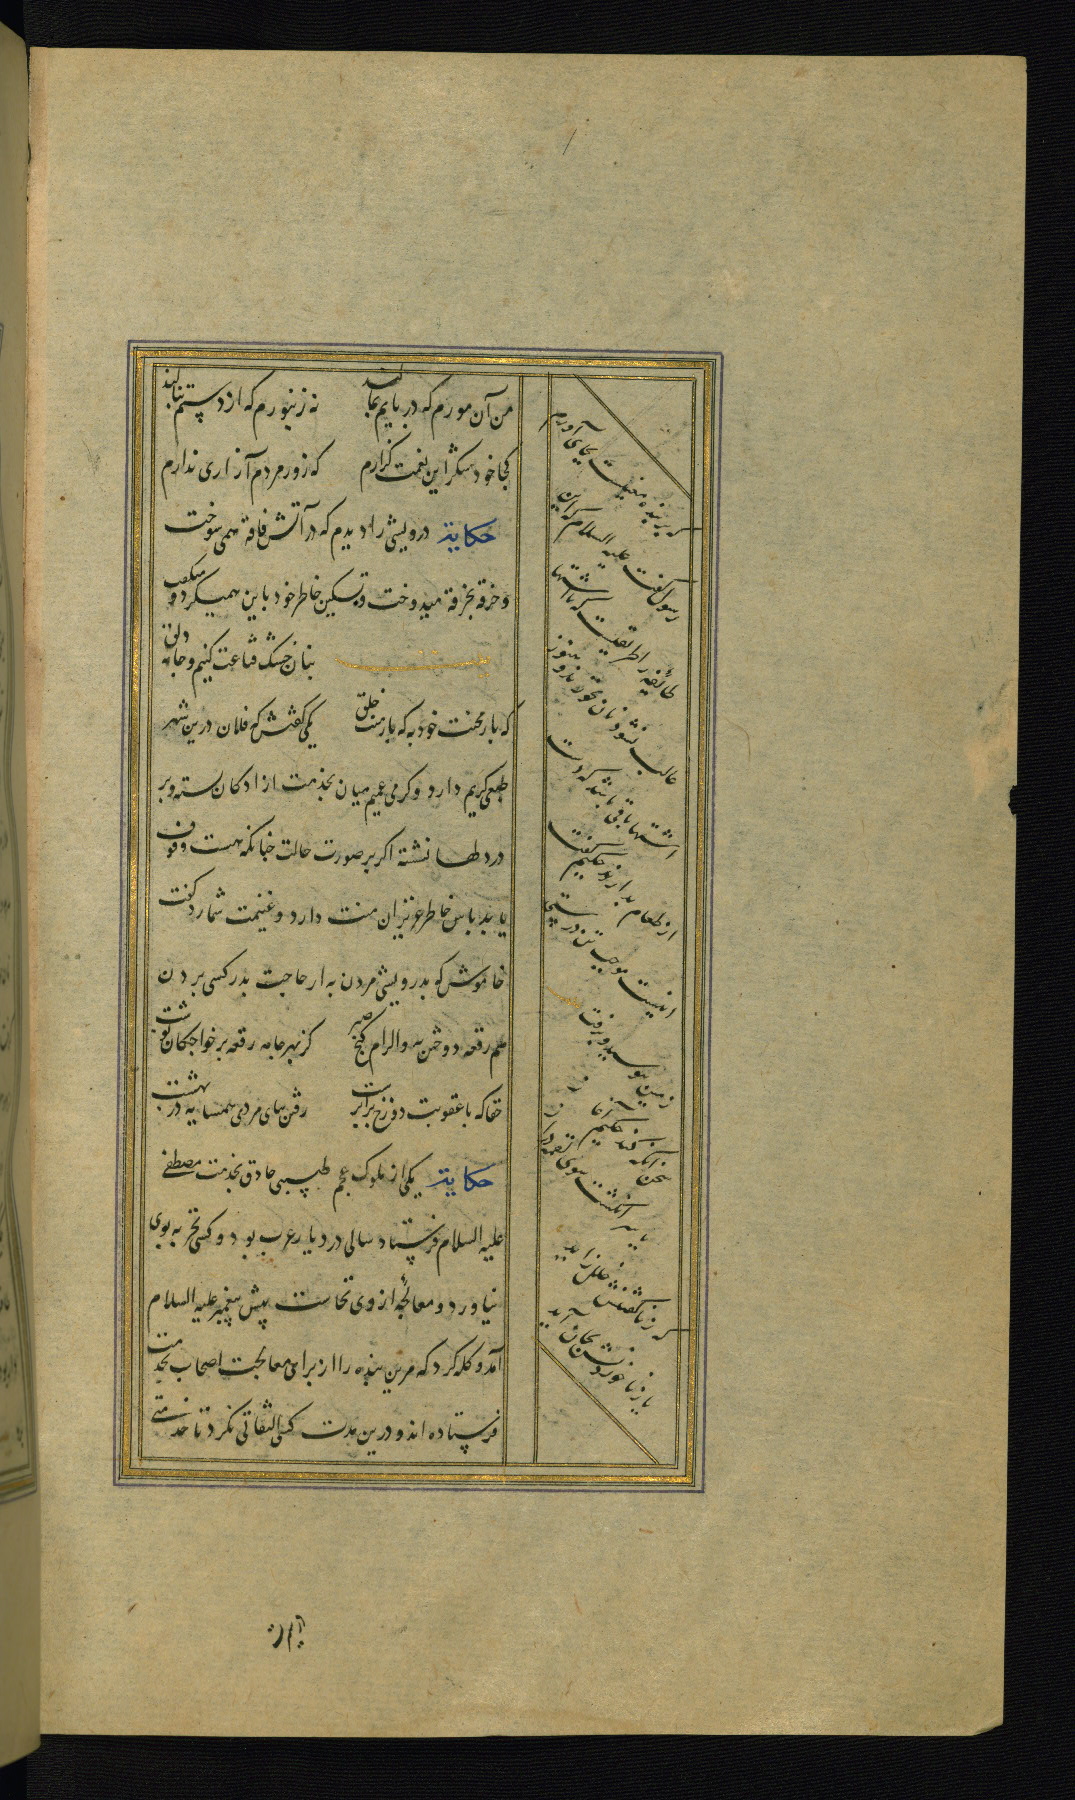 من آن مورم که در پایم بمالند نه زنبورم که از دستم بنالند
کجا خود شکر این نعمت گزارم که زور مردم آزاری ندارم
حکایة درویشی را دیدم که در آتش فاقه همی سوخت
و خرقه بخرقه میدوخت و تسکین خاطر خود باین همیکرد و میکفت
بنان خشک قناعت کنیم و جامه دلق
که بار محنت خود به که بار منت خلق یکی گفتش که فلان درین شهر
طبعی کریم دارد و کرمی عمیم میان بخدمت ازادکان بسته و بر
در دلها نشسته اکر بر صورت حالت چنانکه هست وقوف
یابد پاس خاطر عزیزان منت دارد و غنیمت شمارد کفت
خاموش که بدرویشی مردن به از حاجت بدر کسی بردن
هم رقعه دوختن به و الزام کنج صبر کز بهر جامه رقعه بر خواجکان نوشت
حقا که با عقوبت دوزخ برابرست رفتن بپای مردی همسایه در بهشت
حکایة یکی از ملوک عجم طبیبی حاذق بخدمت مصطفی
علیه السلام فرستاد سالی در دیار عرب بود و کسی تجربه بوی
نیاورد و معالجه از وی نخاست پیش پیغمبر علیه السلام
آمد و کله کرد که مرین بنده را از برای معالجت اصحاب بخدمت
فرستاده اند و درین مدت کسی التفاتی نکرد تا خدمتی
که بر بنده معینست بجای آورم
رسول کفت علیه السلام که این
طائفه را طریقیست که تا اشتها
غالب نشود نان نخورند و هنوز
اشتها باقی باشد که دست
از طعام بدارند حکیم کفت
اینست موجب تندرستی
زمین ببوسید و برفت
سخن آنکه کند حکیم آغاز
یا سر انکشت سوی لقمه دراز
که ز ناکفتنش خلل زاید
یا ز ناخوردنش بجان آید